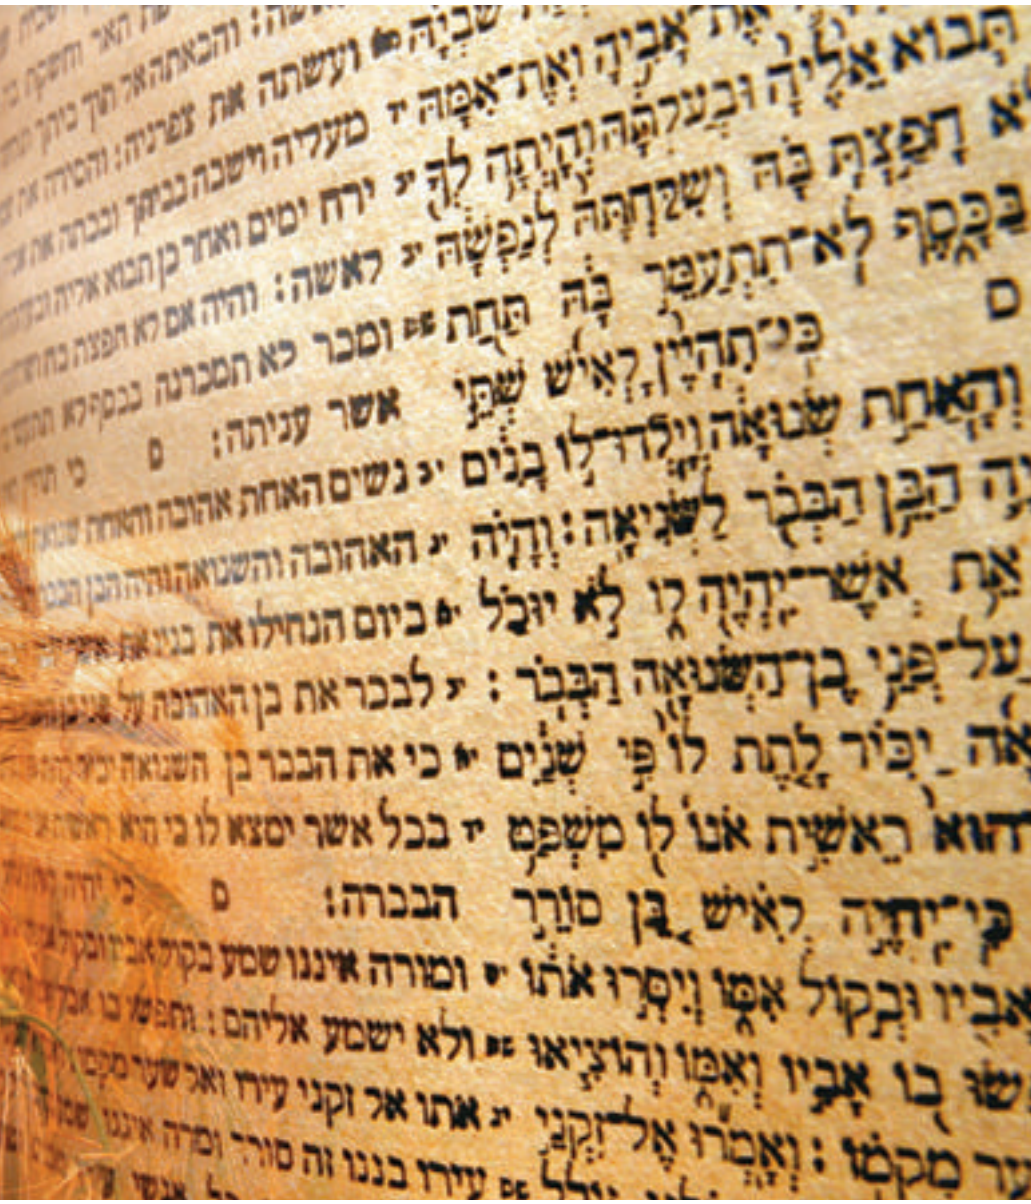 שִׁבְיָהּ
אֶת־אָבִיהָ וְאֶת־אִמָּהּ
תָּבוֹא אֵלֶיהָ וּבְעַלְתָּהּ וְהָיְתָה לְךָ
חָפַצְתָּ בָּהּ וְשִׁלַּחְתָּהּ לְנַפְשָׁהּ
בַּכָּסֶף לֹא־תִתְעַמֵּר בָּהּ תַּחַת
ס
כִּי־תִהְיֶיןָ לְאִישׁ שְׁתֵּי
וְהָאַחַת שְׂנוּאָה וְיָלְדוּ־לוֹ בָנִים
הַבֵּן הַבְּכֹר לַשְּׂנִיאָה: וְהָיָה
אֵת אֲשֶׁר־יִהְיֶה לוֹ לֹא יוּכַל
עַל־פְּנֵי בֶן־הַשְּׂנוּאָה הַבְּכֹר:
יַכִּיר לָתֶת לוֹ פִּי שְׁנַיִם
הוּא רֵאשִׁית אֹנוֹ לוֹ מִשְׁפַּט
כִּי־יִהְיֶה לְאִישׁ בֵּן סוֹרֵר
אָבִיו וּבְקוֹל אִמּוֹ וְיִסְּרוּ אֹתוֹ
בוֹ אָבִיו וְאִמּוֹ וְהוֹצִיאוּ
מקמו: וְאָמְרוּ אֶל־זִקְנֵי
והבאתה אל תוך ביתך
ועשתה את צפרניה: והסירה את
מעליה וישבה בביתך ובכתה את
ירח ימים ואחר כן תבוא אליה
לאשה: והיה אם לא חפצת בה
ומכר לא תמכרנה בכסף לא
אשר עניתה: ס כי
נשים האחת אהובה והאחת
האהובה והשנואה והיה הבן
ביום הנחילו את בניו את
לבכר את בן האהובה על פני
כי את הבכר בן השנואה
בכל אשר ימצא לו כי הוא
הבכרה: ס כי יהיה
ומורה איננו שמע בקול אביו
ולא ישמע אליהם: ותפשו בו
אתו אל זקני עירו ואל שער
עירו בננו זה סורר ומרה איננו
אנשי